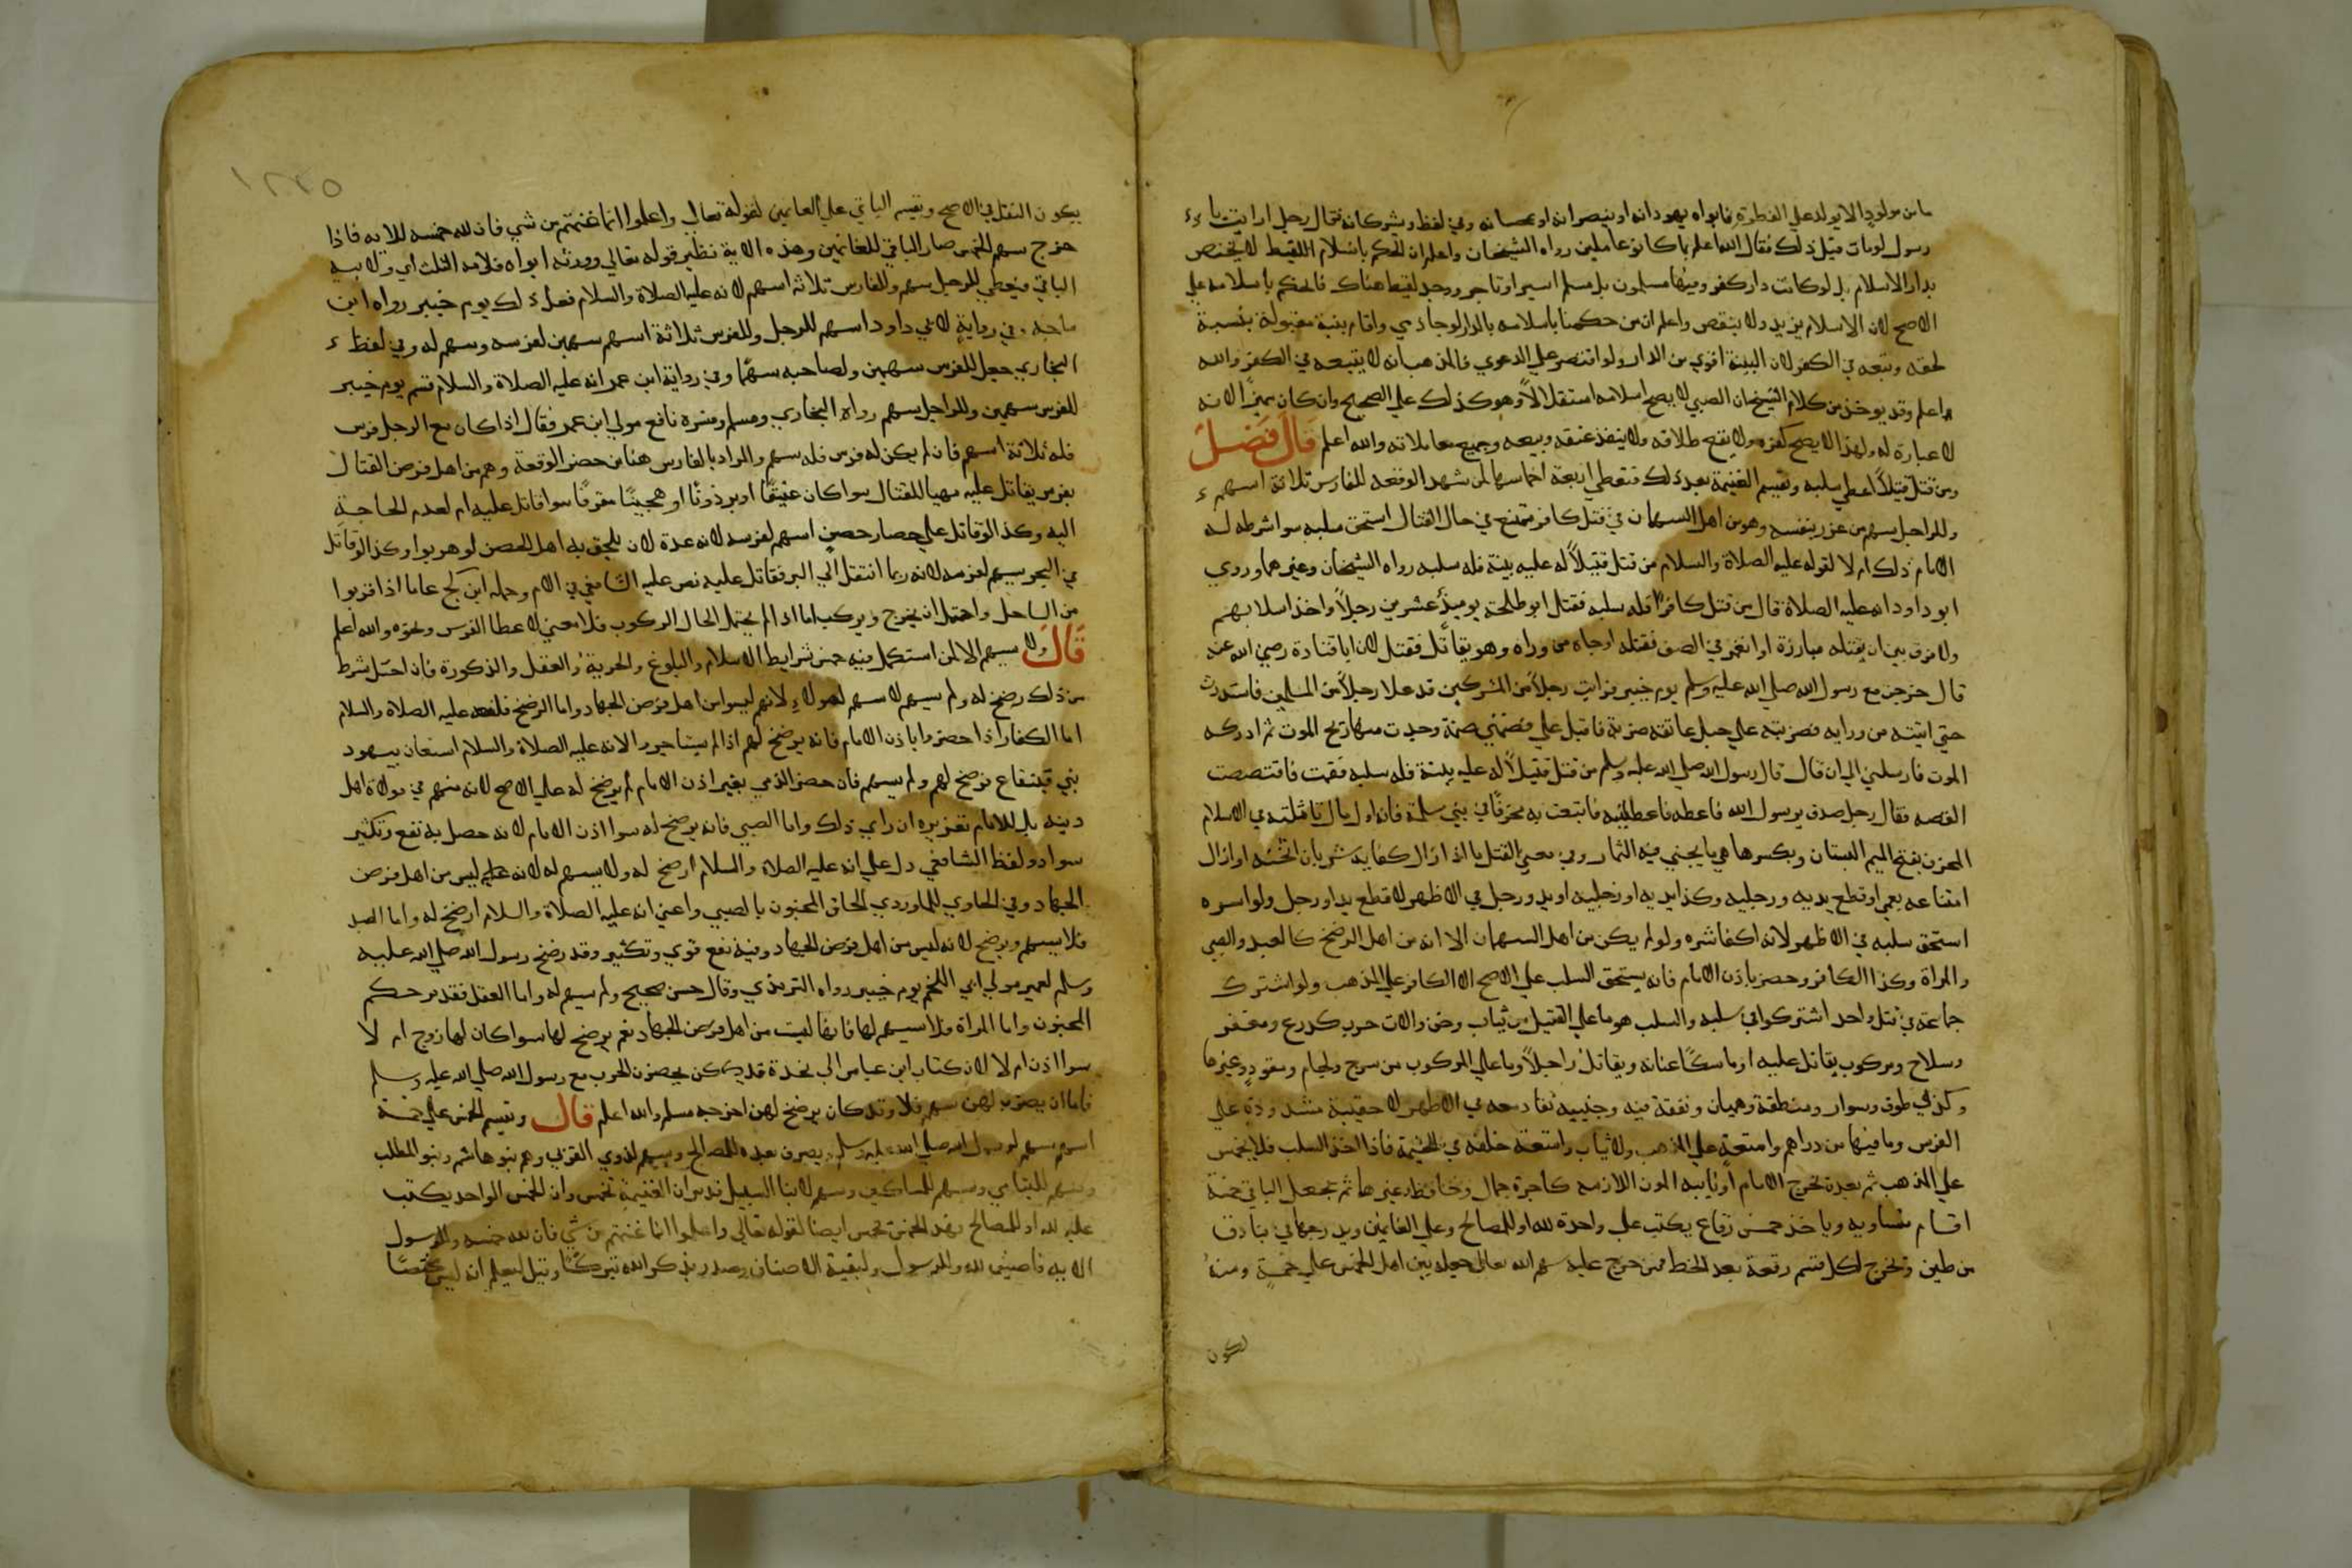 ما من مولود الا يولد علي الفطرة فابواه يهودانه او ينصرانه او يمجسانه وفي لفظ ويشركانه فقال رجل ارايت يا
رسول لومات قبل ذلك فقال الله اعلم بما كانوا عاملين رواه الشيخان واعلم ان الحكم باسلام اللقيط لا يختص
بدار الاسلام بل لو كانت دار كفر وفيها مسلمون بل مسلم اسير او تاجر ووجد لقيط هناك فالحكم باسلامه علي
الاصح لان الاسلام يزيد ولا ينقص واعلم ان من حكمنا باسلامه بالدار لو جا ذمي واقام بينة مقبولة بنسبه
لحقه وتبعه في الكفر لان البينة اقوي من الدار ولو اقتصر علي الدعوي فالمذهب انه لا يتبعه في الكفر والله
اعلم وقد يوخذ من كلام الشيخ ان الصبي لا يصح اسلامه استقلالاً وهو كذلك علي الصحيح وان كان مميزاً لانه
لا عبارة له ولهذا لا يصح كفره ولا يقع طلاقه ولا ينفذ عتقه وبيعه وجميع معاملاته والله اعلم قال فصل
ومن قتل قتيلاً اعطي سلبه وتقسم الغنيمة بعد ذلك فتعطي اربعة اخماسها لمن شهد الوقعة للفارس ثلاثة اسهم
وللراجل سهم من غزر بنفسه وهو من اهل السهمان في قتل كافر ممتنع في حال القتال استحق سلبه سوا شرطه له
الامام ذلك ام لا لقوله عليه الصلاة والسلام من قتل قتيلاً له عليه بينة فله سلبه رواه الشيخان وغيرهما وروي
ابو داود انه عليه الصلاة قال من قتل كافراً فله سلبه فقتل ابو طلحة يوميذ عشرين رجلاً واخذ اسلابهم
ولا فرق بين ان يقتله مبارزة او انغمر في الصف فقتله اوجاه من وراه وهو يقاتل فقتل لان ابا قتادة رضي الله عنه
قال خرجن مع رسول الله صلي الله عليه وسلم يوم خيبر فرايت رجلاً من المشركين قد علا رجلاً من المسلمين فاستدرت
حتي اتيته من ورايه فضربته علي حبل عاتقه ضربة فاقبل علي فضمني ضمة وجدت منها ريح الموت ثم ادركه
الموت فارسلني الي ان قال قال رسول الله صلي الله عليه وسلم من قتل قتيلاً له عليه بينة فله سلبه فقمت فاقتصصت
القصه فقال رجل صدق يرسول الله فاعطه فاعطانيه فابتعت به مخرفاً في بني سلمة فانه اول مال تاثلته في الاسلام
المخرف بفتح الميم البستان وبكسرها هي ما يجني فيه الثمار وفي معني القتل ما اذا ازال كفاية شره بان اثخنه او ازال
امتناعه بعمي او قطع يديه ورجليه وكذا يديه او رجليه او يد ورجل في الاظهر لا قطع يد او رجل ولو اسره
استحق سلبه في الاظهر لانه اكفا شره ولو لم يكن من اهل السهمان الا انه من اهل الرضخ كالعبد والصبي
والمراة وكذا الكافر وحضر باذن الامام فانه يستحق السلب علي الاصح الا الكافر علي المذهب ولو اشترك
جماعة في قتل واحد اشتركوا في سلبه والسلب هو ما علي القتيل من ثياب وخف والات حرب كدرع ومغفر
وسلاح ومركوب يقاتل عليه او ماسكاً عنانه ويقاتل راجلاً وما علي المركوب من سرج ولجام ومقود وغيرها
وكذا في طوق وسوار ومنطقة وهميان ونفقة فيه وجنيبه تقاد معه في الاظهر لا حقيبة مشدودة علي
الفرس وما فيها من دراهم وامتعة علي المذهب ولا ثياب وامتعة خلفه في الخيمة فاذا اخذ السلب فلا يخمس
علي المذهب ثم بعده تخرج الامام او نايبه المون اللازمه كاجرة جمال وحافظ وغيرها ثم يجعل الباقي خمسة
اقسام متساويه وياخذ خمس رقاع يكتب علي واحدة لله او للمصالح وعلي الغانمين ويدرجها في بنادق
من طين وتخرج لكل قسم رقعة بعد الخط فمن خرج عليه سهم الله تعالي جعله بين اهل الخمس علي خمسة ومنه
يكون
١٢٢٥
يكون النفل في الاصح وتقسم الباقي علي الغانمين لقوله تعالي واعلموا انما غنمتم من شي فان لله خمسه للايه فاذا
خرج سهم الخمس صار الباقي للغانمين وهذه الاية نظير قوله تعالي وورثه ابواه فلامه الثلث اي ولابيه
الباقي فيعطي للرجل سهم وللفارس ثلاثة اسهم لانه عليه الصلاة والسلام فعل ذلك يوم خيبر رواه ابن
ماجه وفي رواية لابي داود اسهم للرجل وللفرس ثلاثة اسهم سهمين لفرسه وسهم له وفي لفظ
البخاري جعل للفرس سهمين ولصاحبه سهماً وفي رواية ابن عمر انه عليه الصلاة والسلام قسم يوم خيبر
للفرس سهمين وللراجل سهم رواه البخاري ومسلم وفسره نافع مولي ابن عمر فقال اذا كان مع الرجل فرس
فله ثلاثة اسهم فان لم يكن له فرس فله سهم والمراد بالفارس هنا من حضر الوقعة وهو من اهل فرض القتال
بفرس يقاتل عليه مهيا للقتال سوا كان عتيقاً او برذوناً او هجيناً مقرفاً سوا قاتل عليه ام لعدم الحاجة
اليه وكذا لو قاتل علي حصار حصن اسهم لفرسه لانه عدة لان يلحق به اهل الحصن لو هربوا وكذا لو قاتل
في البحر سهم لفرسه لانه ربما انتقل الي البر فقاتل عليه نص عليه الشافعي في الام وحمله ابن كج عاما اذا قربوا
من الساحل واحتمل ان يخرج ويركب اما اذا لم يحتمل الحال الركوب فلا معني لاعطا الفرس ونحوه والله اعلم
قال ولا سهم الا لمن استكمل فيه خمس شرايط الاسلام والبلوغ والحرية والعقل والذكورة فان اختل شرط
من ذلك رضخ له ولم يسهم لا سهم لهولاء لانهم ليسوا من اهل فرض الجهاد واما الرضخ فلفعله عليه الصلاة والسلام
اما الكفار اذا حضروا باذن الامام فانه يرضخ لهم اذا لم يستاجروا لانه عليه الصلاة والسلام استعان بيهود
بني قينقاع فرضخ لهم ولم يسهم فان حضر الذمي بغير اذن الامام لم يرضخ له علي الاصح لانه متهم في موالاة اهل
دينه بل للامام تعزيره ان راي ذلك واما الصبي فانه يرضخ له سوا اذن الامام لانه حصل به نفع وتكثير
سواد ولفظ الشافعي دل علي انه عليه الصلاة والسلام ارضخ له ولا يسهم له لانه ليس من اهل فرض
الجهاد وفي الحاوي للماوردي الحاق المجنون بالصبي واعني انه عليه الصلاة والسلام ارضخ له واما العبد
فلا يسهم ويرضخ لانه ليس من اهل فرض الجهاد وفيه نفع قوي وتكثير وقد رضخ رسول الله صلي الله عليه
وسلم لعمير مولي ابي اللحم يوم خيبر رواه الترمذي وقال حسن صحيح ولم يسهم له واما العقل فقد مر حكم
المجنون واما المراة فلا سهم لها فانها ليست من اهل فرض الجهاد نعم يرضخ لها سوا كان لها زوج ام لا
سوا اذن ام لا لان كتاب ابن عباس الي نجدة قد كن يحضرن الحرب مع رسول الله صلي الله عليه وسلم
فاما ان يضرب لهن سهم فلا وقد كان يرضخ لهن اخرجه مسلم والله اعلم قال وتقسم الخمس علي خمسة
اسهم سهم لرسول الله صلي الله عليه وسلم يصرف بعده للمصالح وسهم لذوي القربي وهم بنو هاشم وبنو المطلب
وسهم لليتامي وسهم للمساكين وسهم لابنا السبيل قد مر ان الغنيمة تخمس وان الخمس الواحد يكتب
عليه لله او للمصالح وهذ الخمس تخمس ايضا لقوله تعالي واعلموا انما غنمتم من شي فان لله خمسه وللرسول
الايه فاضيف لله وللرسول ولبقية الاصناف وصدر بذكر الله تبركاً وقيل ليعلم انه ليس مختصاً